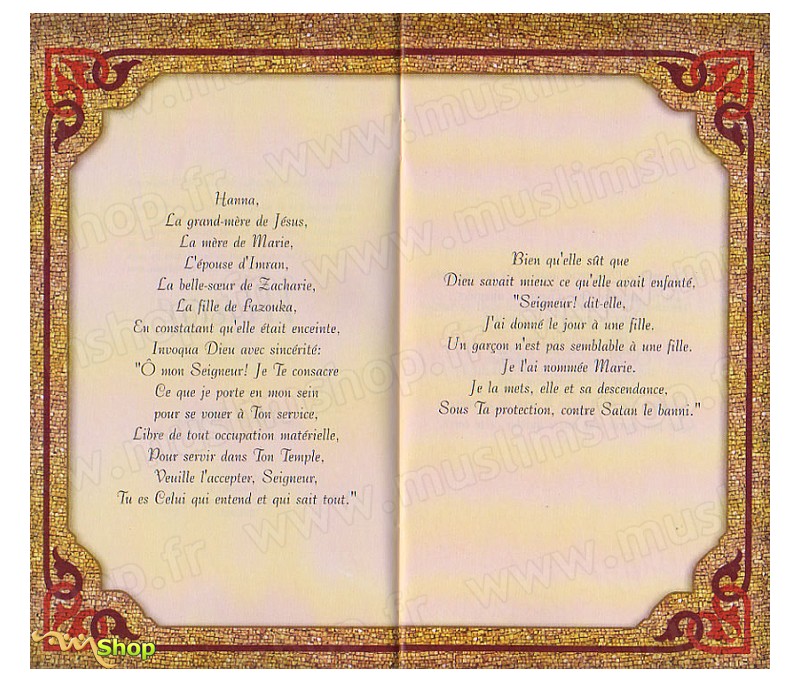 Hanna,
La grand-mère de Jésus,
La mère de Marie,
L'épouse d'Imran,
La belle-sœur de Zacharie,
La fille de Fazouka,
En constatant qu'elle était enceinte,
Invoqua Dieu avec sincérité:
"Ô mon Seigneur! Je Te consacre
Ce que je porte en mon sein
pour se vouer à Ton service,
Libre de tout occupation matérielle,
Pour servir dans Ton Temple,
Veuille l'accepter, Seigneur,
Tu es Celui qui entend et qui sait tout."
Bien qu'elle sût que
Dieu savait mieux ce qu'elle avait enfanté,
"Seigneur! dit-elle,
J'ai donné le jour à une fille.
Un garçon n'est pas semblable à une fille.
Je l'ai nommée Marie.
Je la mets, elle et sa descendance,
Sous Ta protection, contre Satan le banni."
www.muslimshop.fr
Shop